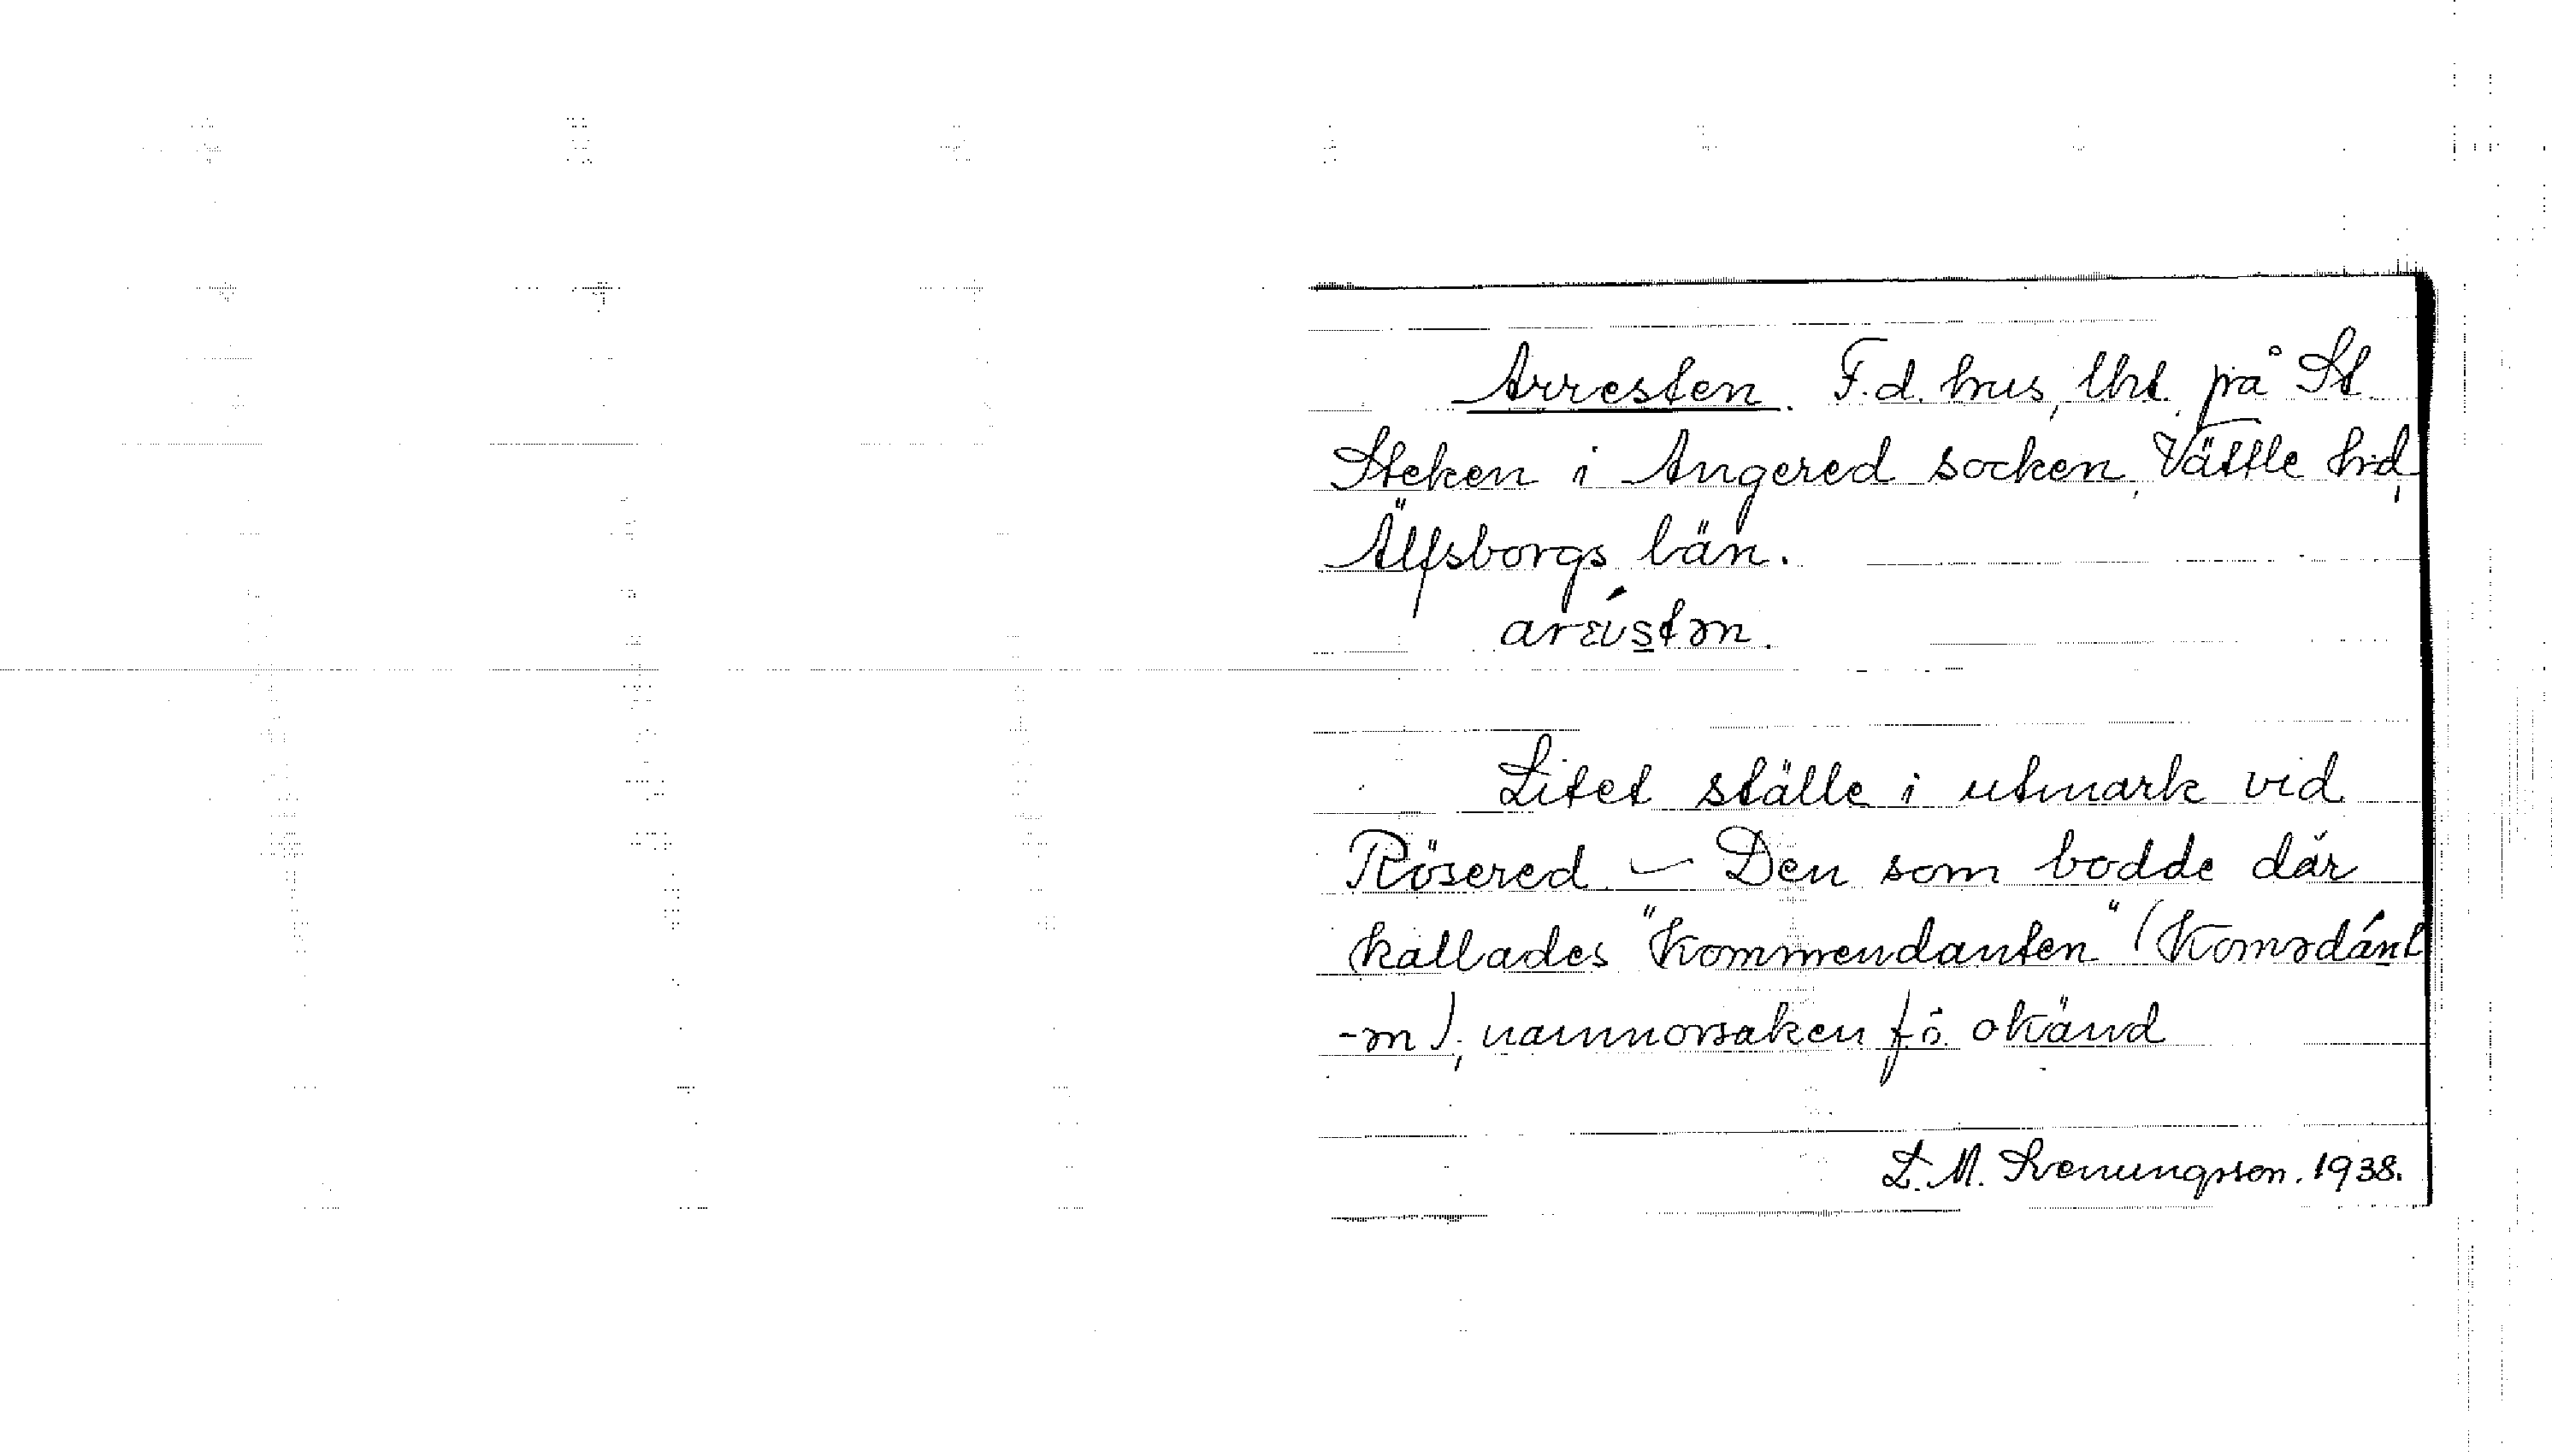 Arresten. F.d. hus, lht. på St
Steken i Angered socken, Vättle hd,
Älfsborgs län.
Litet ställe i utmark vid
Rösered – Den som bodde där
kallades "Kommendanten" (Komədánt
-ən), namnorsaken f.ö. okänd
L. M. Svenungsson. 1938.